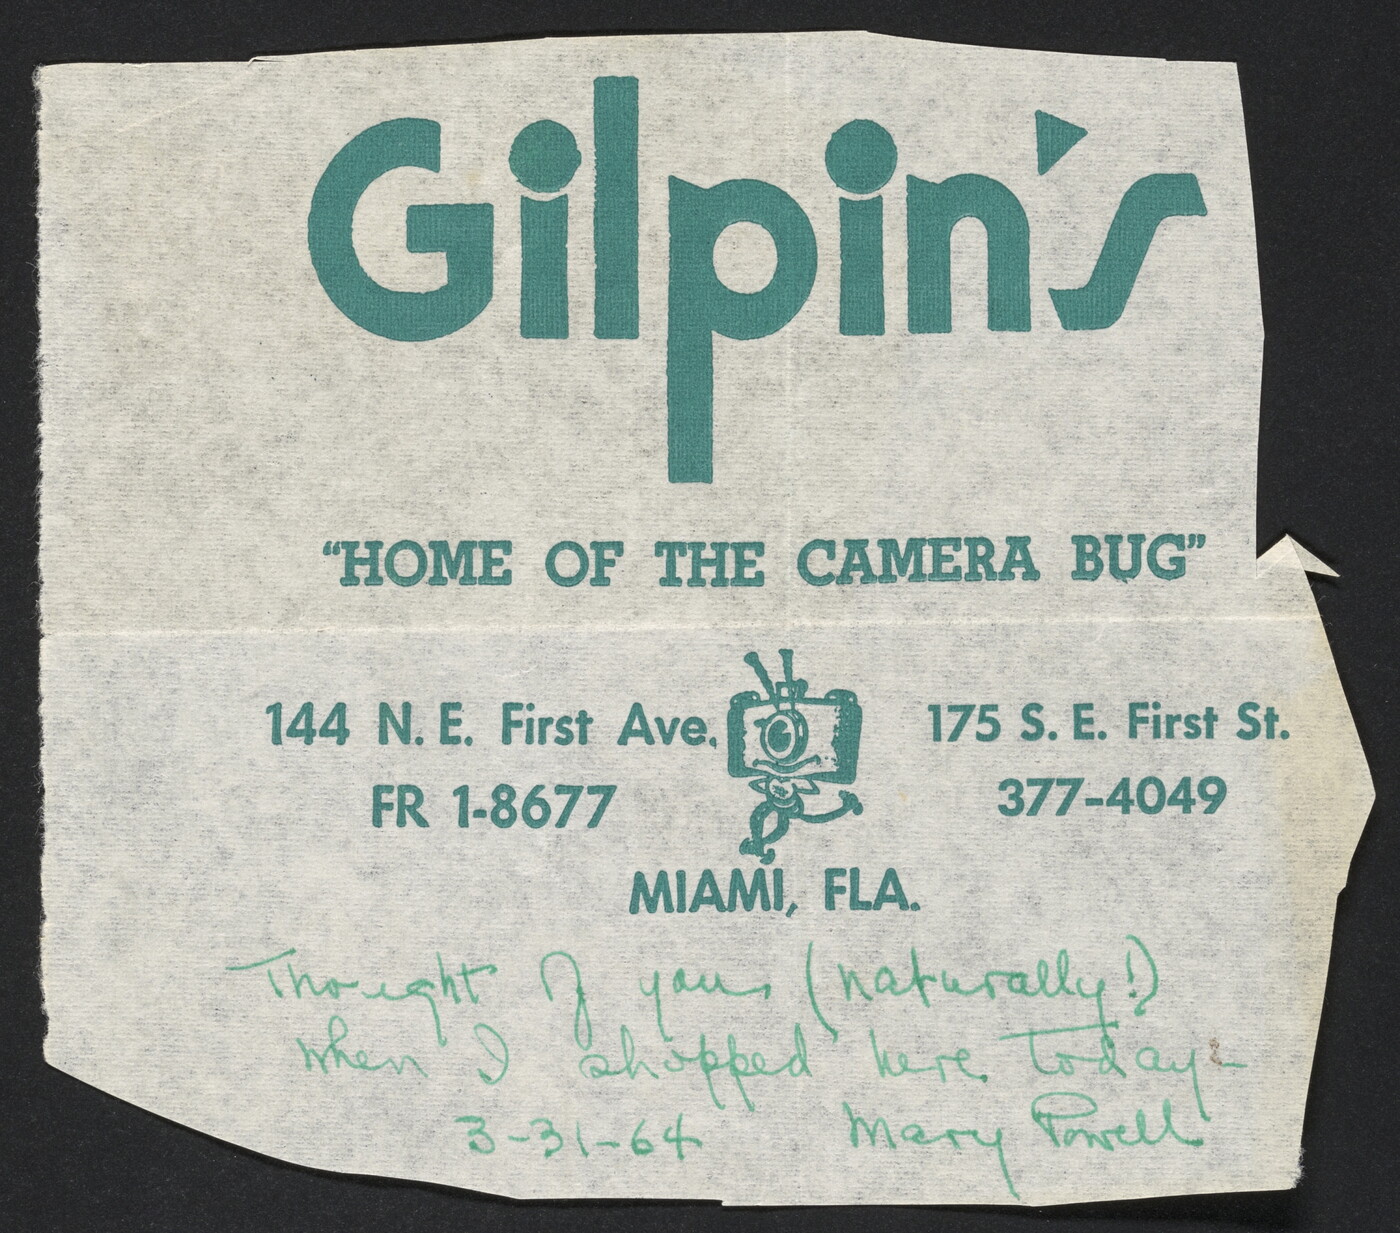 Gilpin's
“HOME OF THE CAMERA BUG”
144 N. E. First Ave.
FR 1-8677
175 S. E. First St.
377-4049
MIAMI, FLA.
Thought of you (naturally!)
when I shopped here today-
3-31-64 Mary Powell